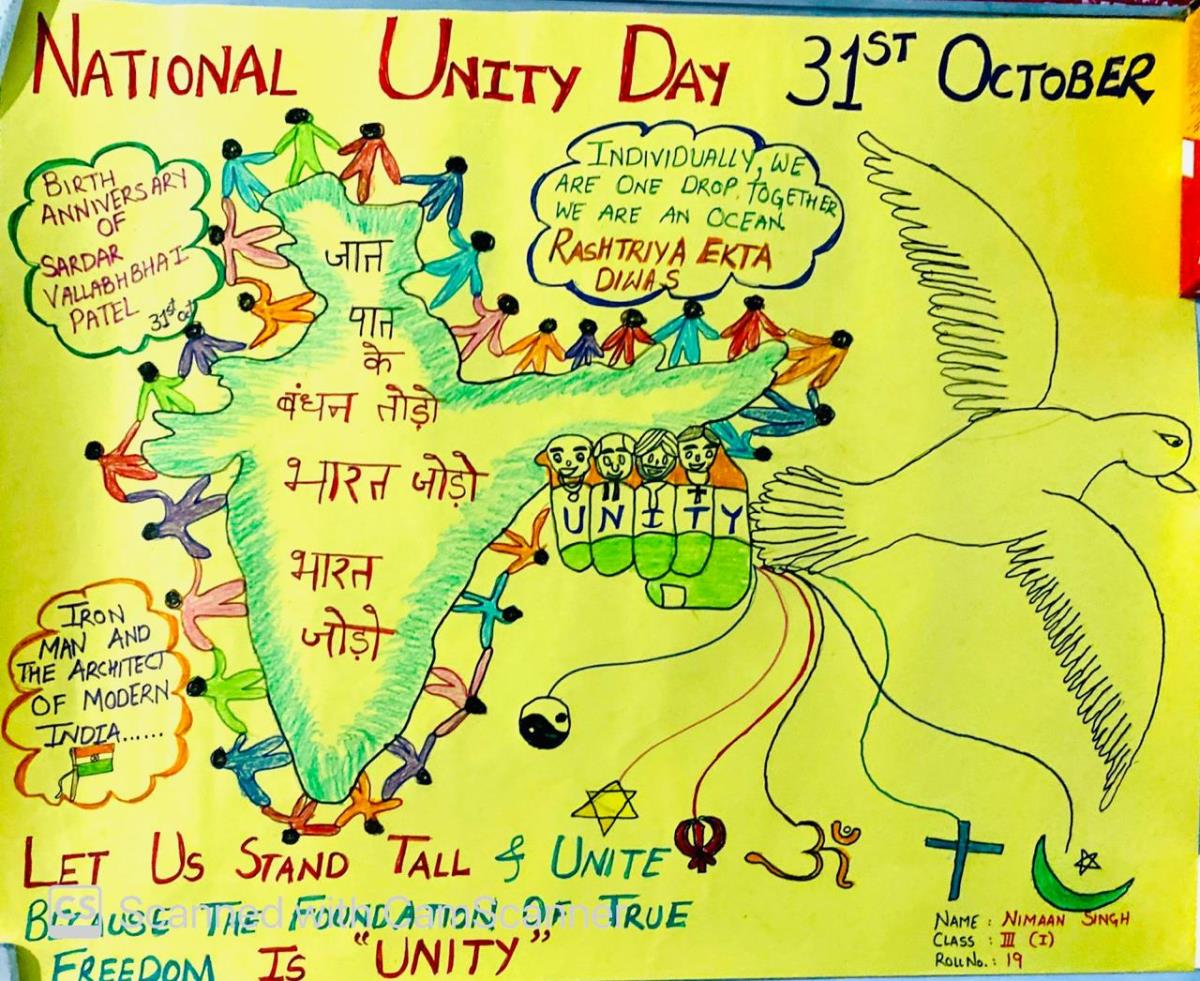 NATIONAL UNITY DAY 31ST OCTOBER
BIRTH
ANNIVERSARY
OF
SARDAR
VALLABHBHAI
PATEL 31st oct
INDIVIDUALLY, WE
ARE ONE DROP. TOGETHER
WE ARE AN OCEAN
RASHTRIYA EKTA
DIWAS
जात
पात
के
बंधन तोड़ो
भारत जोड़ो
भारत
जोड़ो
UNITY
IRON
MAN AND
THE ARCHITECT
OF MODERN
INDIA......
LET US STAND TALL & UNITE
BECAUSE THE FOUNDATION OF TRUE
FREEDOM IS "UNITY"
CS Scanned with CamScanner
NAME : NIMAAN SINGH
CLASS : III (I)
ROLL NO. : 19